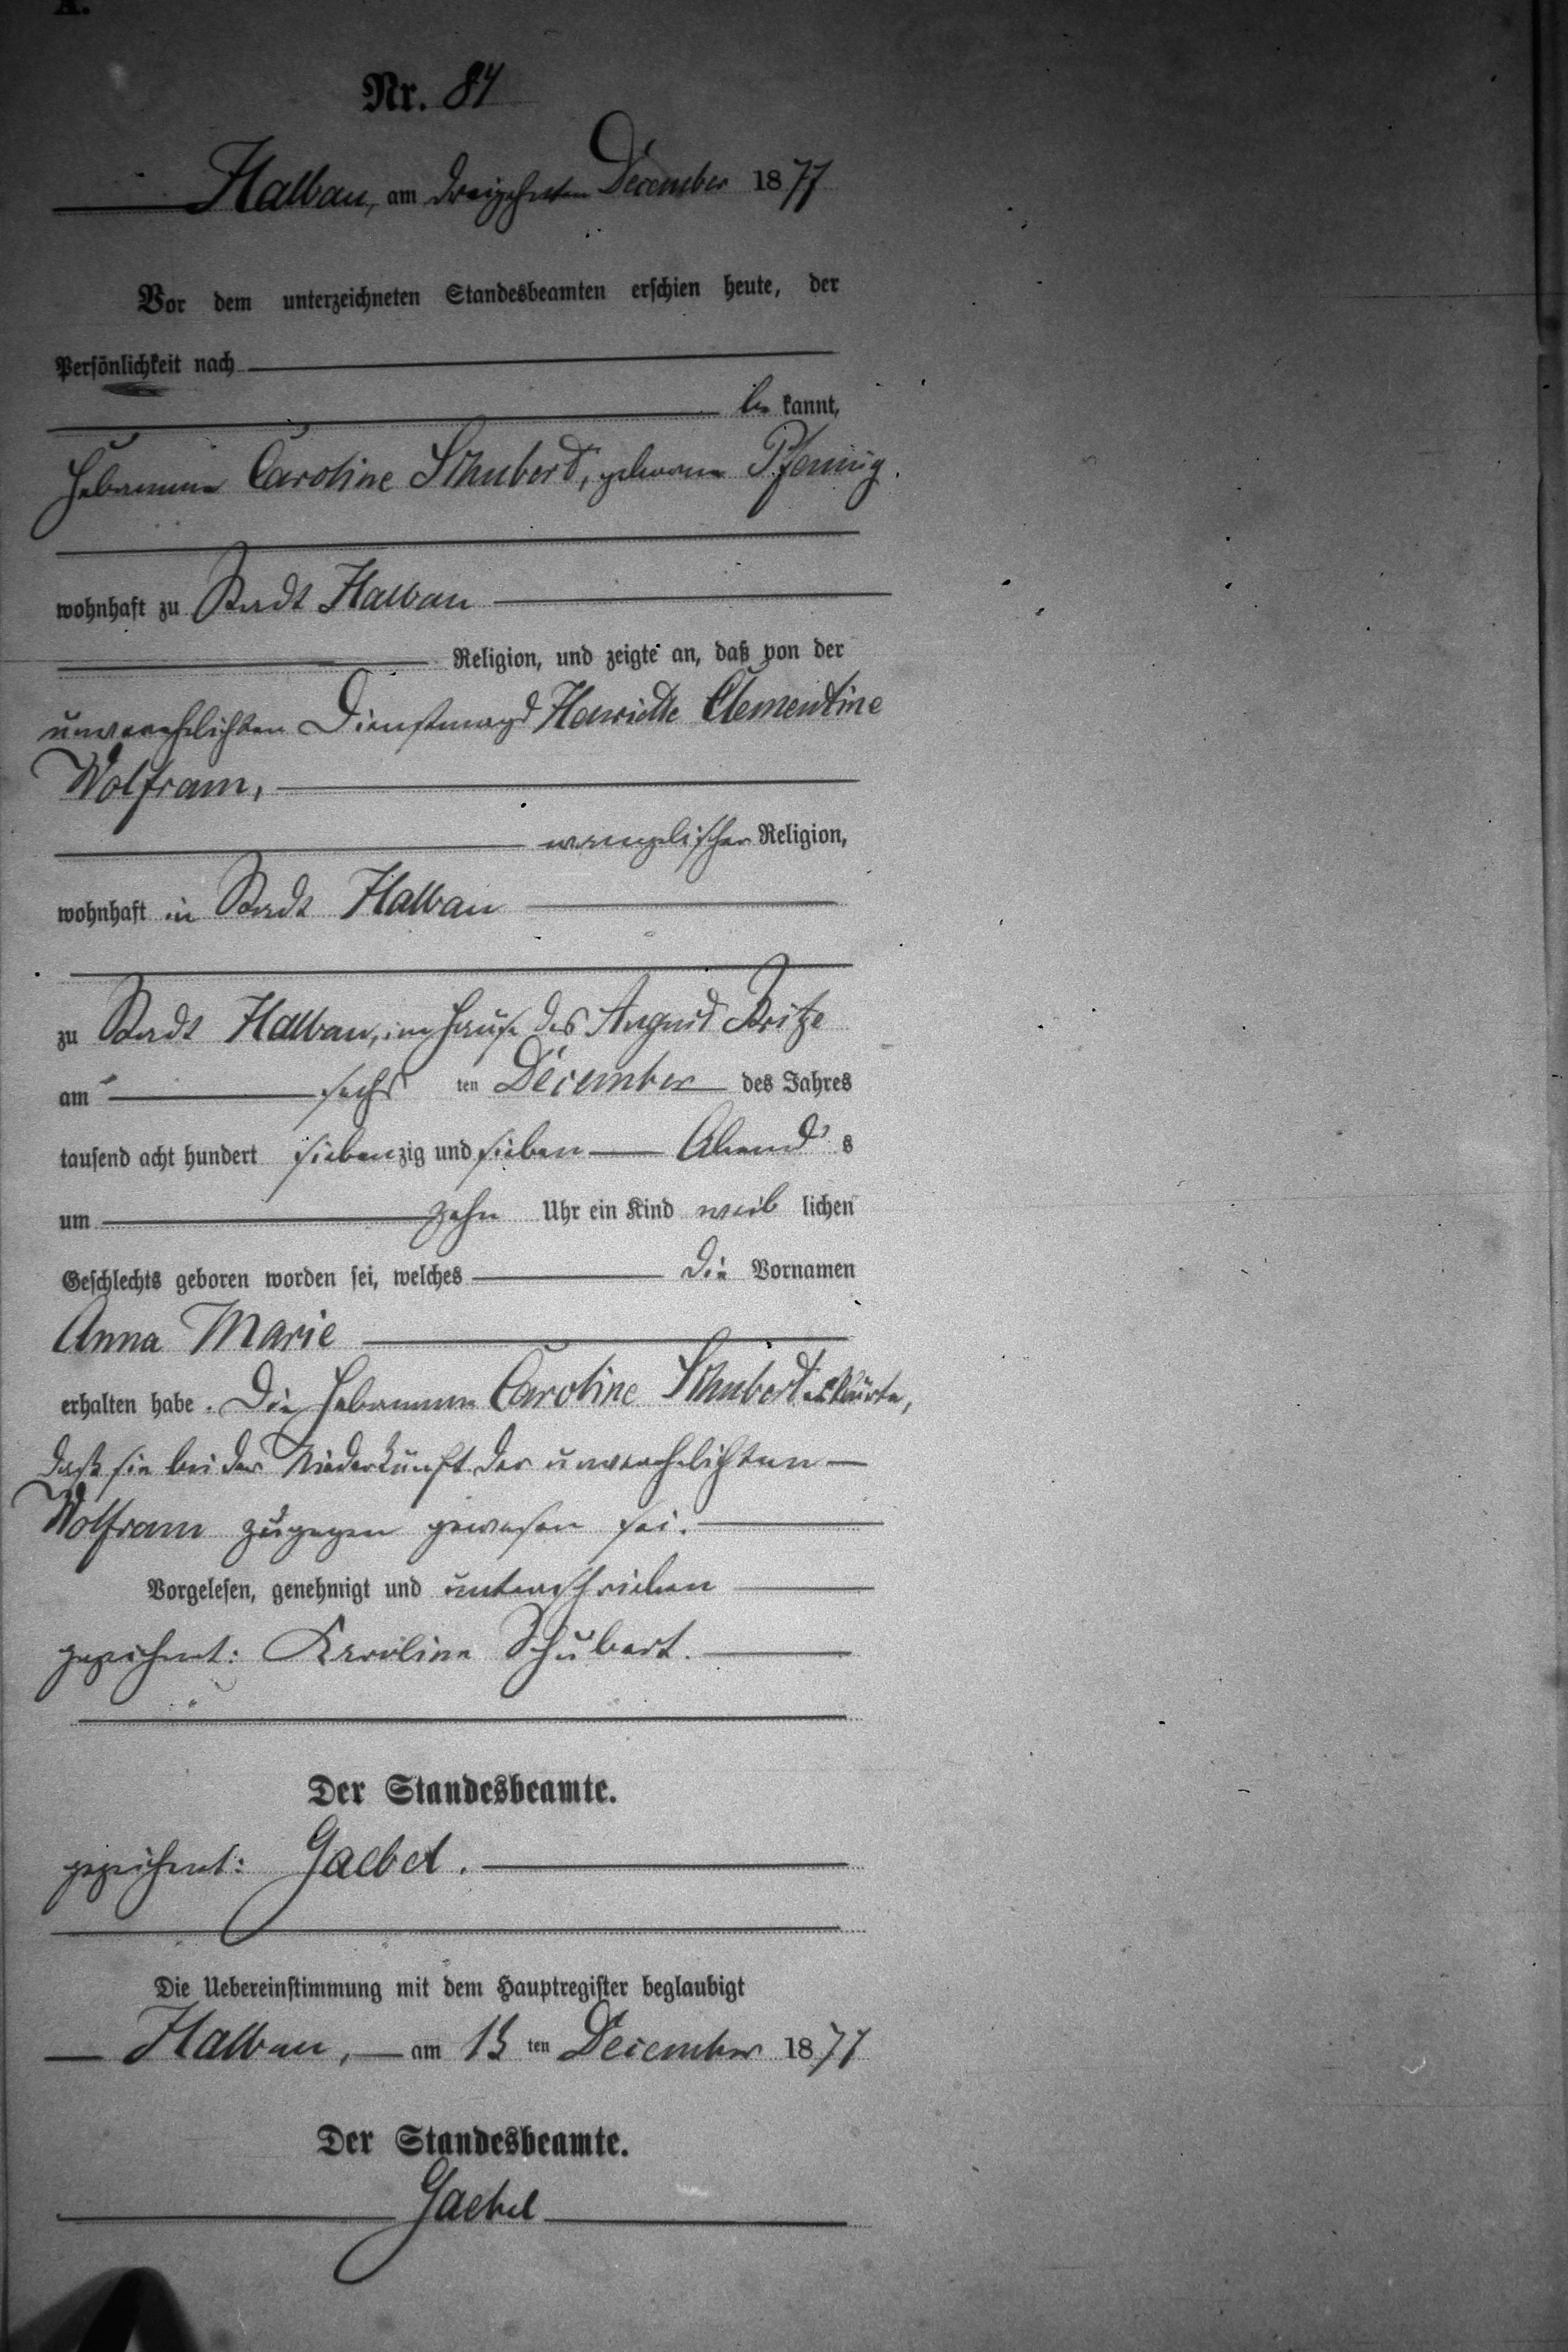 A.
Nr. 84
Halbau, am dreizehnten December 1877
Vor dem unterzeichneten Standesbeamten erschien heute, der
Persönlichkeit nach
be kannt,
Hebamme Caroline Schubert, geborene Pfennig.
wohnhaft zu Stadt Halbau
Religion, und zeigte an, daß von der
unverehelichten Dienstmagd Henriette Clementine
Wolfram,
evangelischer Religion,
wohnhaft in Stadt Halbau
zu Stadt Halbau, im Hause des August
am sechs ten December des Jahres
tausend acht hundert siebenzig und sieben Abend s
um zehn Uhr ein Kind weib lichen
Geschlechts geboren worden sei, welches die Vornamen
Anna Marie
erhalten habe. Die Hebamme Caroline Schubert erklärte,
daß sie bei der Niederkunft der unverehelichten
Wolfram zugegen gewesen sei.
Vorgelesen, genehmigt und unterschrieben
gezeichnet: Karoline Schubert.
Der Standesbeamte.
gezeichnet: Gaebel.
Die Uebereinstimmung mit dem Hauptregister beglaubigt
Halbau, am 13 ten December 1877
Der Standesbeamte.
Gaebel